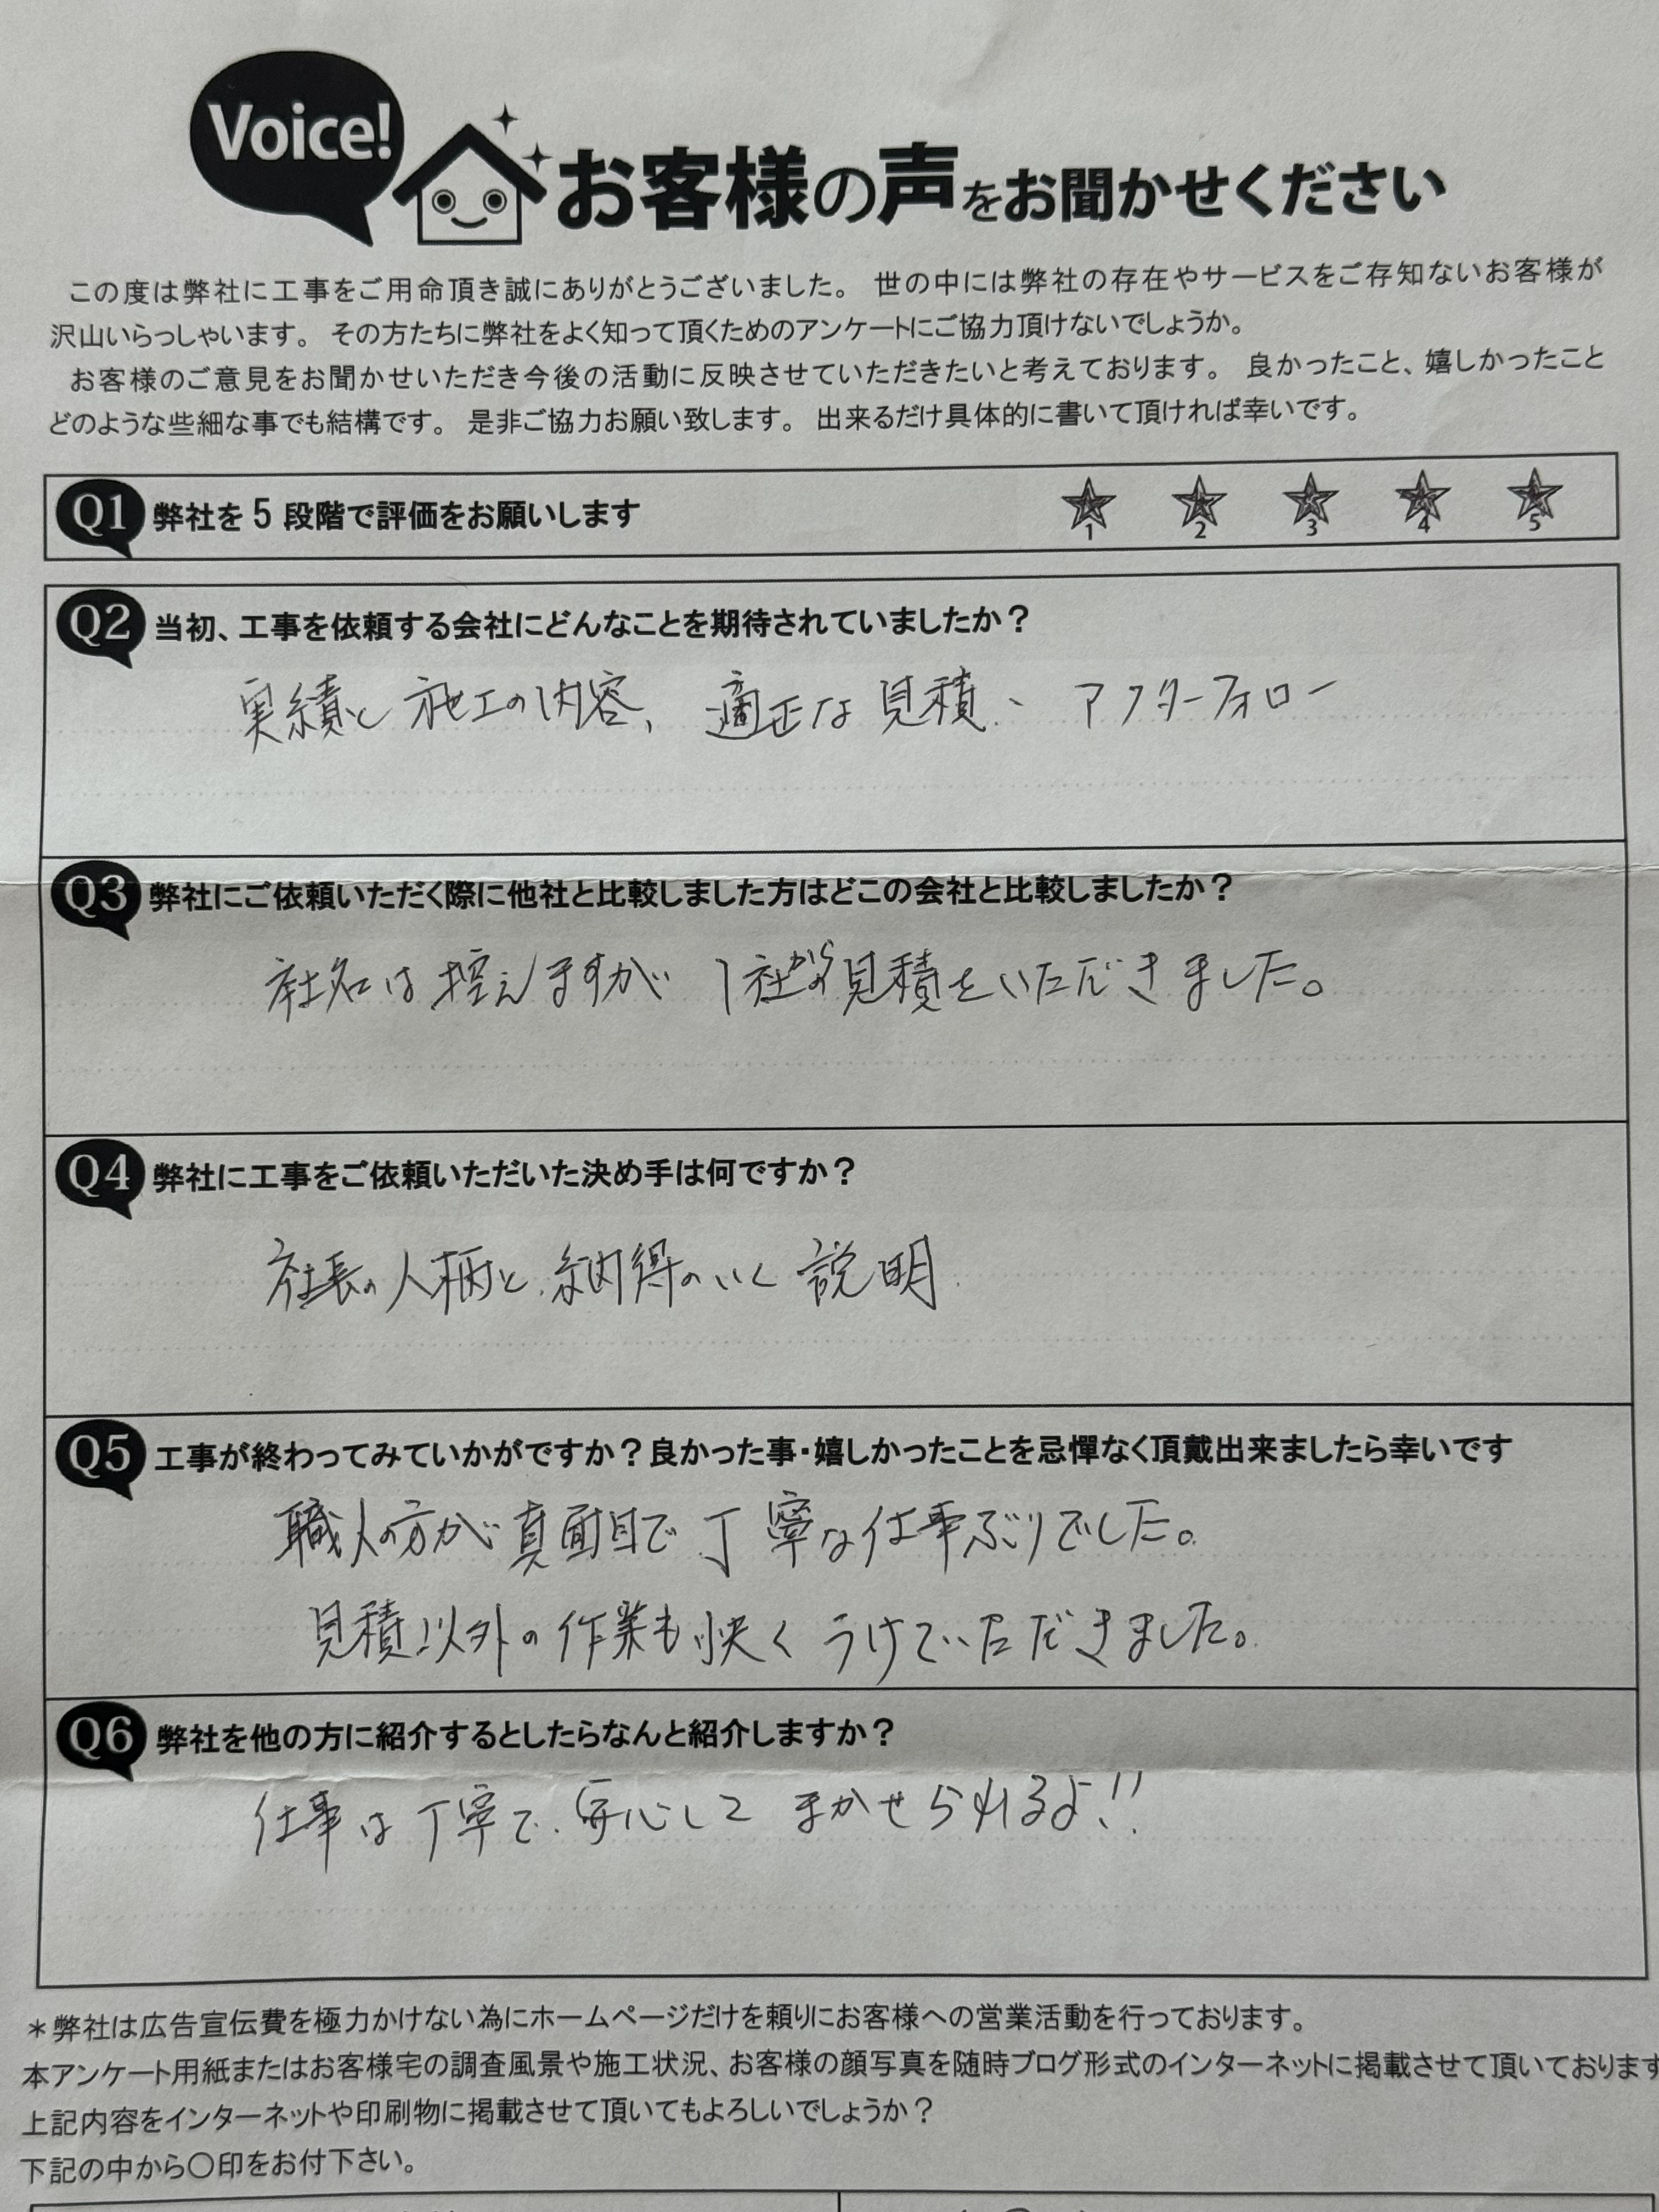 Voice!
お客様の声をお聞かせください
この度は弊社に工事をご用命頂き誠にありがとうございました。 世の中には弊社の存在やサービスをご存知ないお客様が
沢山いらっしゃいます。 その方たちに弊社をよく知って頂くためのアンケートにご協力頂けないでしょうか。
お客様のご意見をお聞かせいただき今後の活動に反映させていただきたいと考えております。 良かったこと、嬉しかったこと
どのような些細な事でも結構です。 是非ご協力お願い致します。 出来るだけ具体的に書いて頂ければ幸いです。
Q1 弊社を5段階で評価をお願いします 1 2 3 4 5
Q2 当初、工事を依頼する会社にどんなことを期待されていましたか？
実績と施工の内容、適正な見積、アフターフォロー
Q3 弊社にご依頼いただく際に他社と比較しました方はどこの会社と比較しましたか？
社名は控えますが 1社から見積をいただきました。
Q4 弊社に工事をご依頼いただいた決め手は何ですか？
社長の人柄と、納得のいく説明
Q5 工事が終わってみていかがですか？良かった事・嬉しかったことを忌憚なく頂戴出来ましたら幸いです
職人の方が真面目で丁寧な仕事ぶりでした。
見積以外の作業も快くうけていただきました。
Q6 弊社を他の方に紹介するとしたらなんと紹介しますか？
仕事は丁寧で、安心してまかせられるよ!!
＊弊社は広告宣伝費を極力かけない為にホームページだけを頼りにお客様への営業活動を行っております。
本アンケート用紙またはお客様宅の調査風景や施工状況、お客様の顔写真を随時ブログ形式のインターネットに掲載させて頂いております
上記内容をインターネットや印刷物に掲載させて頂いてもよろしいでしょうか？
下記の中から〇印をお付下さい。